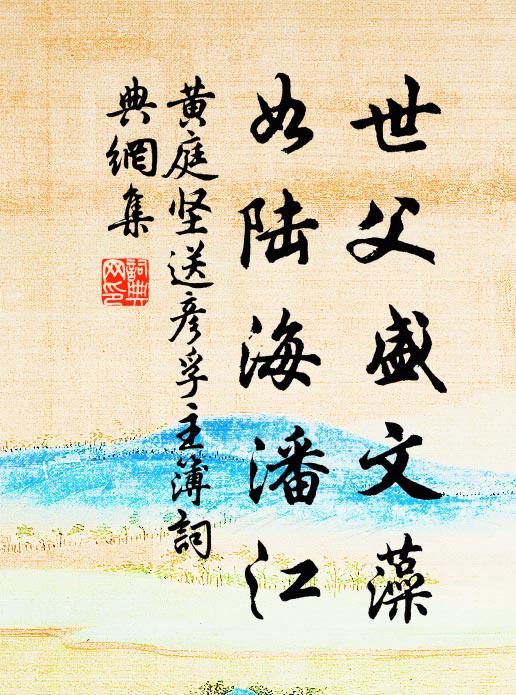 世父盛文藻
如陆海潘江
黄庭坚送彦孚主簿詞
典網集
詞典网印